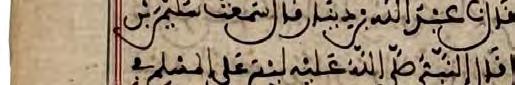 قال نا عبد الله بن دينار قال سمعت سليمن بن
قال النبي صلى الله عليه ليس على المسلم في